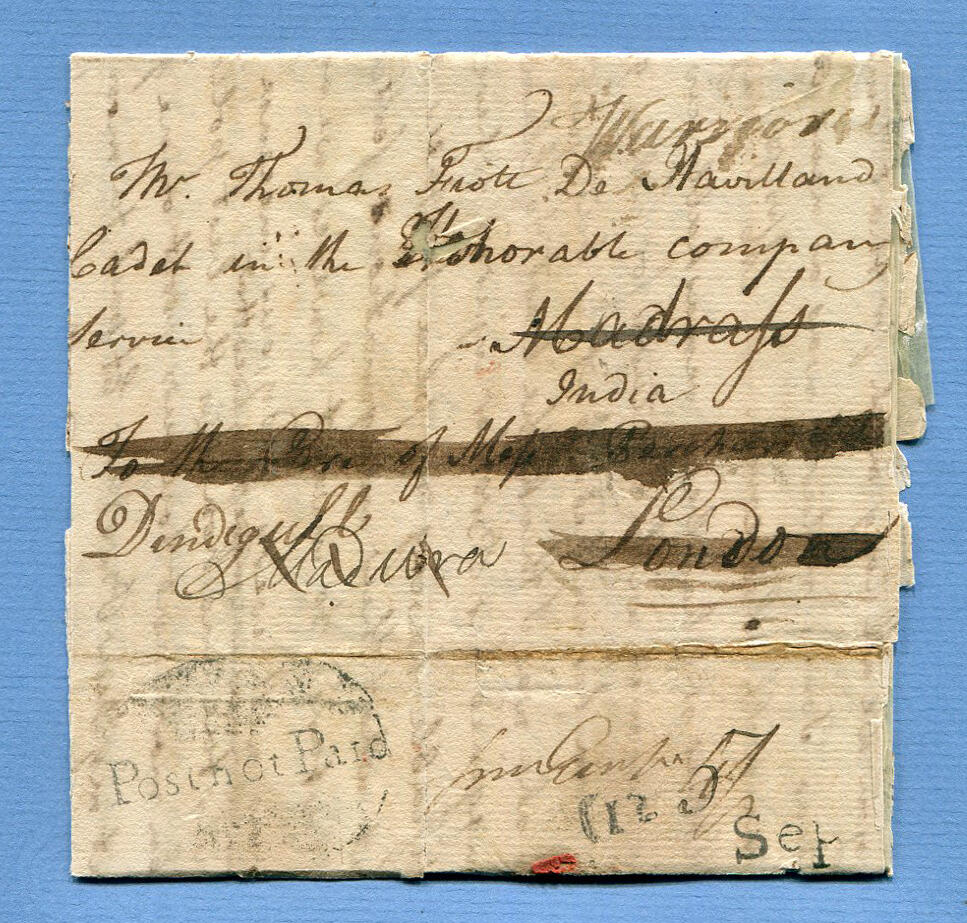 Warrior
Mr. Thomas Fiott De Havilland
Cadet in the Honorable company
service Madrass
India
To the Care of Messrs
Dindigull
Madura London
Post not Paid
(12
Sep